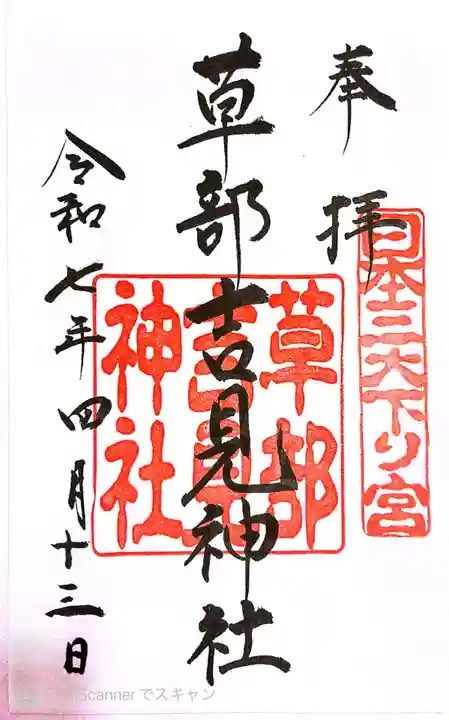 奉拝
日本三大下り宮
草部吉見神社
草部
吉見
神社
令和七年四月十三日
Scanner でスキャン